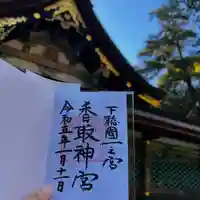 下総國一之宮
香取神宮
令和五年一月十一日